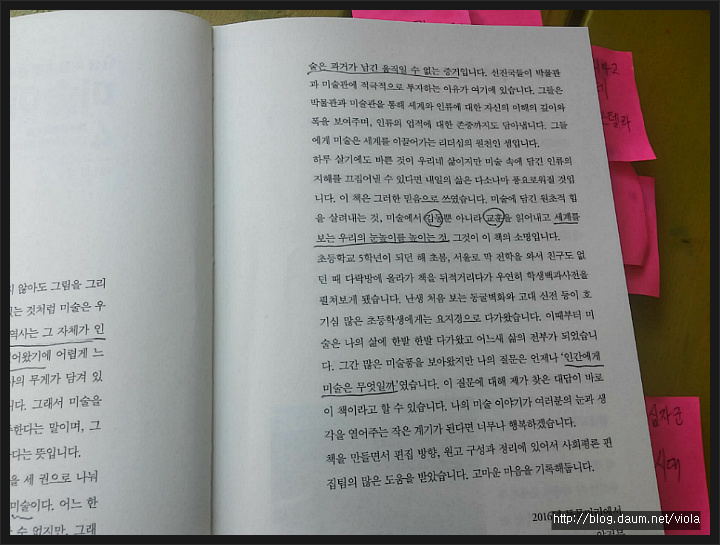 지 않아도 그림을 그리
있는 것처럼 미술은 우
역사는 그 자체가 인
어왔기에 어렵게 느
의 무게가 담겨 있
니다. 그래서 미술을
한다는 말이며, 그
다는 뜻입니다.
을 세 권으로 나눠
미술이다. 어느 한
수 없지만, 그래
술은 과거가 남긴 움직일 수 없는 증거입니다. 선진국들이 박물관
과 미술관에 적극적으로 투자하는 이유가 여기에 있습니다. 그들은
박물관과 미술관을 통해 세계와 인류에 대한 자신의 이해의 깊이와
폭을 보여주며, 인류의 업적에 대한 존중까지도 담아냅니다. 그들
에게 미술은 세계를 이끌어가는 리더십의 원천인 셈입니다.
하루 살기에도 바쁜 것이 우리네 삶이지만 미술 속에 담긴 인류의
지혜를 끄집어낼 수 있다면 내일의 삶은 다소나마 풍요로워질 것입
니다. 이 책은 그러한 믿음으로 쓰였습니다. 미술에 담긴 원초적 힘
을 살려내는 것, 미술에서 감동뿐 아니라 교훈을 읽어내고 세계를
보는 우리의 눈높이를 높이는 것, 그것이 이 책의 소명입니다.
초등학교 5학년이 되던 해 초봄, 서울로 막 전학을 와서 친구도 없
던 때 다락방에 올라가 책을 뒤적거리다가 우연히 학생백과사전을
펼쳐보게 됐습니다. 난생 처음 보는 동굴벽화와 고대 신전 등이 호
기심 많은 초등학생에게는 요지경으로 다가왔습니다. 이때부터 미
술은 나의 삶에 한발 한발 다가왔고 어느새 삶의 전부가 되었습니
다. 그간 많은 미술품을 보아왔지만 나의 질문은 언제나 '인간에게
미술은 무엇일까'였습니다. 이 질문에 대해 제가 찾은 대답이 바로
이 책이라고 할 수 있습니다. 나의 미술 이야기가 여러분의 눈과 생
각을 열어주는 작은 계기가 된다면 너무나 행복하겠습니다.
책을 만들면서 편집 방향, 원고 구성과 정리에 있어서 사회평론 편
집팀의 많은 도움을 받았습니다. 고마운 마음을 기록해둡니다.
2016
십자군
시대
http://blog.daum.net/viola